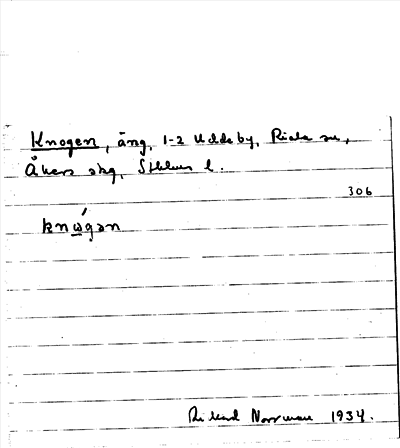 Knogen, äng, 1-2 Uddeby, Riala sn,
Åkers skg, Sthlms l.
306
knώ̲gən
Rikard Norrman 1934.